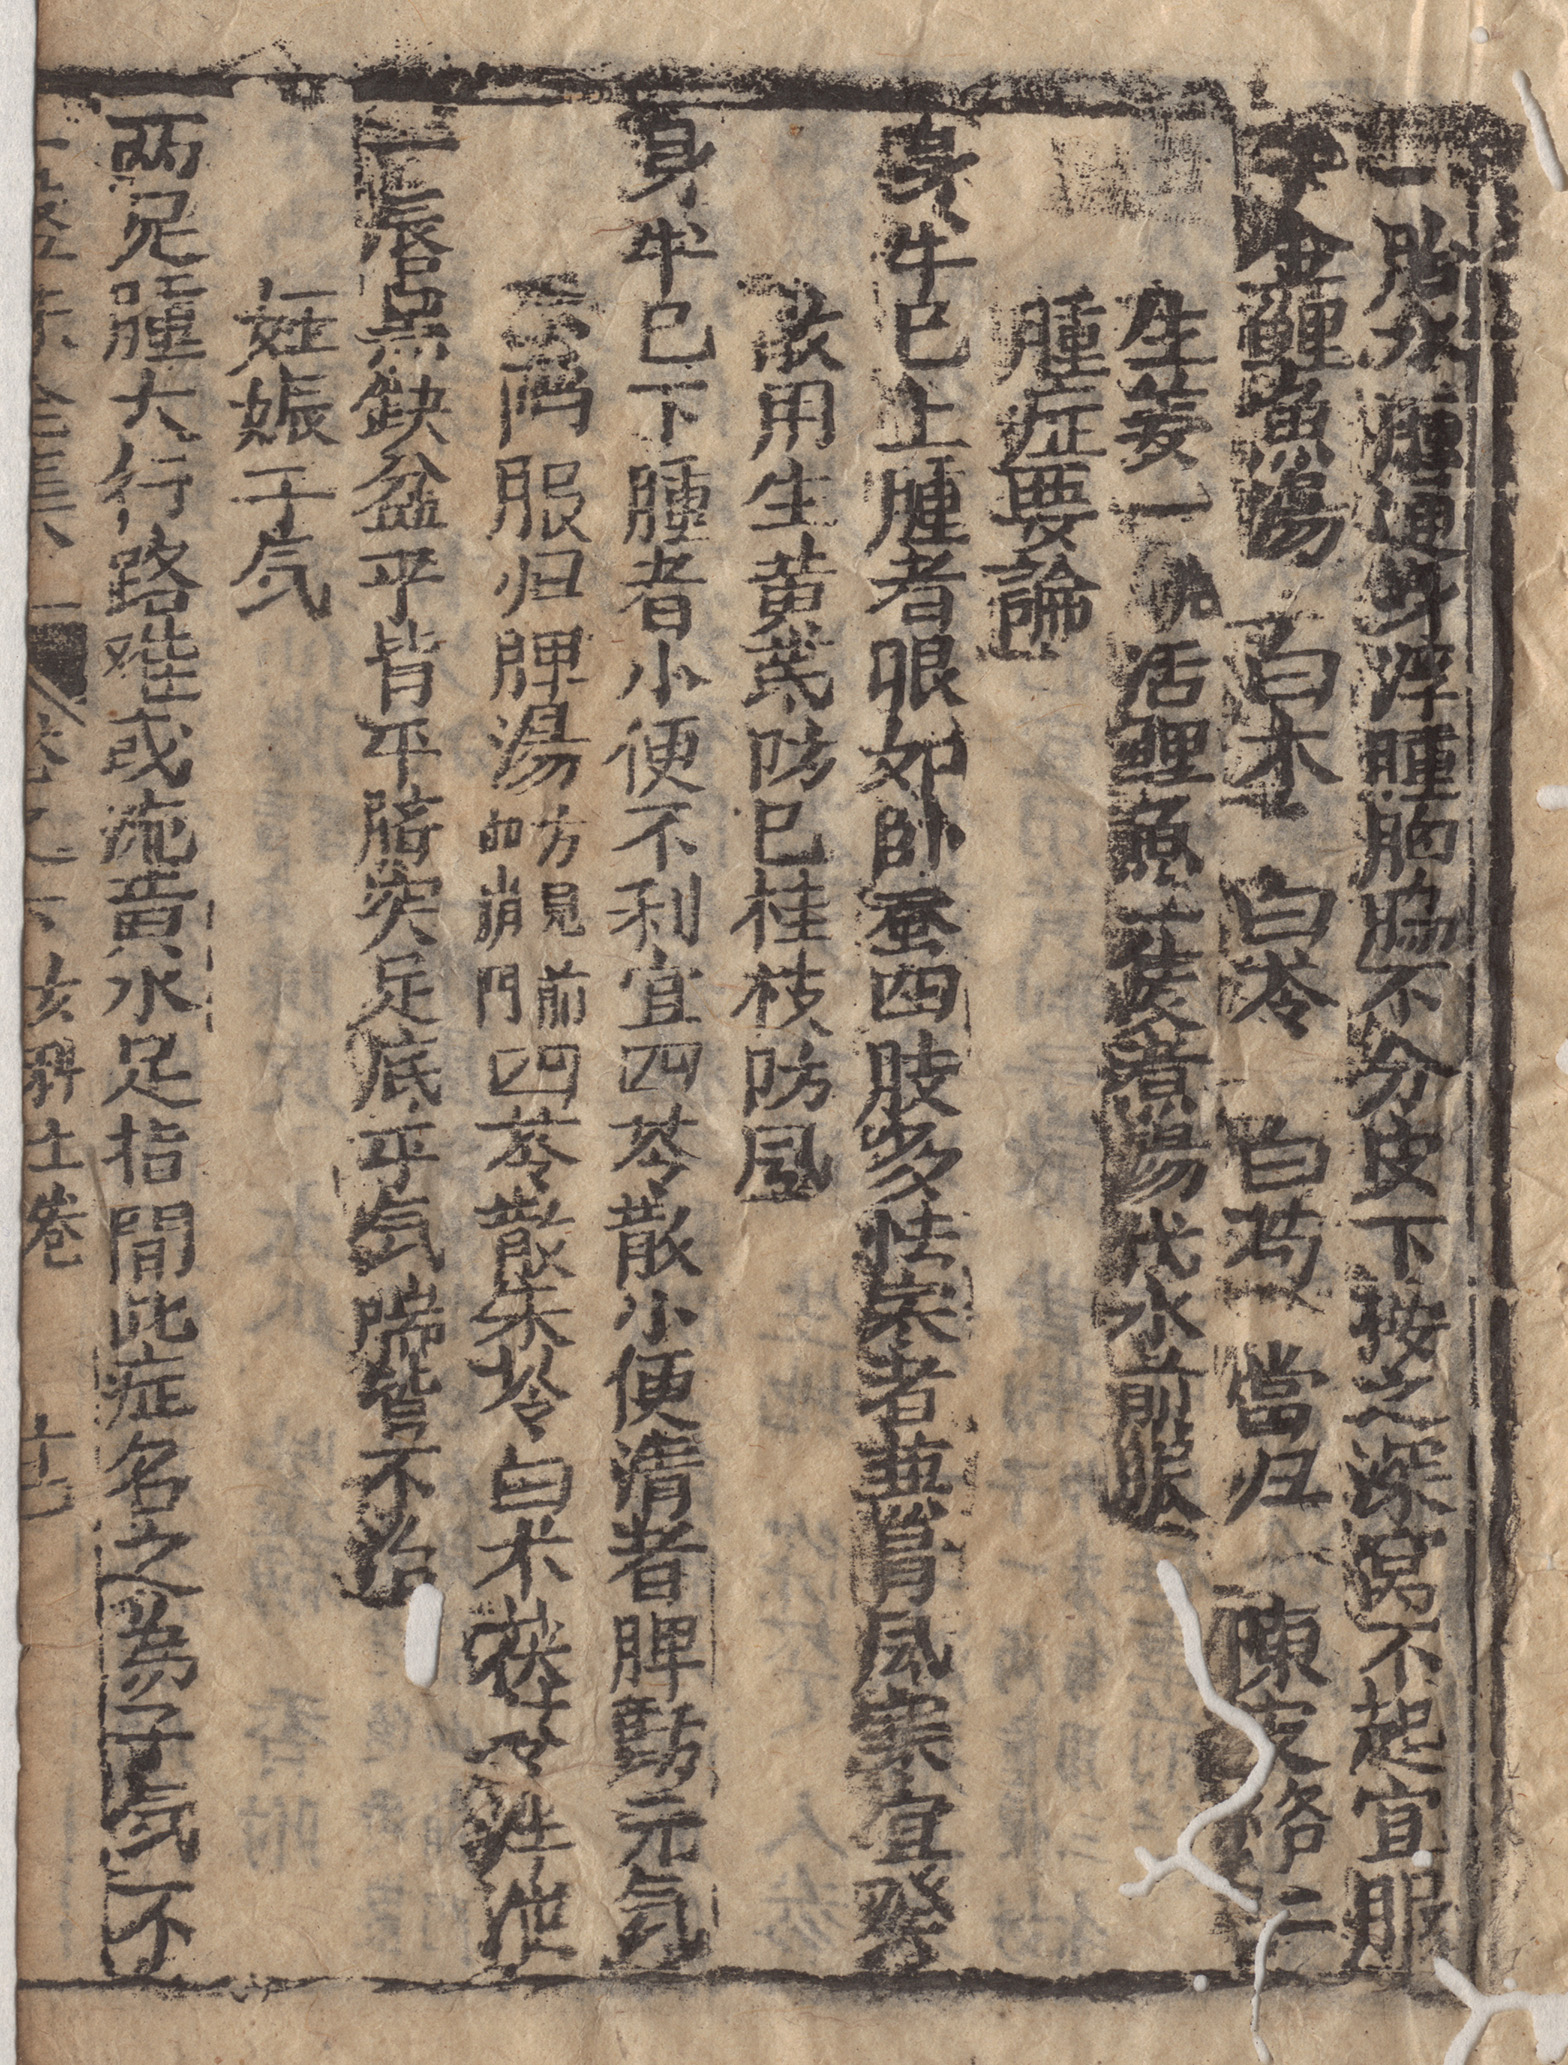 一胎水腫通身浮腫胸脇不分皮下按之深窩不起宜服
千金鯉魚湯　白术　白苓　白芍　當归　陳皮絡二
生姜一　活鯉魚一隻煮湯代水煎服
腫症要論
身半已上腫者眼如卧蚕四肢多怯寒者兼胃風寒宜發
散用生黄茋防已桂枝防風
身半已下腫者小便不利宜四苓散小便清者脾虧元気
下陷服归脾湯方見前加硝門四苓散朱苓白术茯苓泩泄
一唇黑缺盆平背平臍突足底平気喘皆不治
妊娠子気
两足腫大行路难或流黄水足指間此症名之為子気不
女科上卷　十七